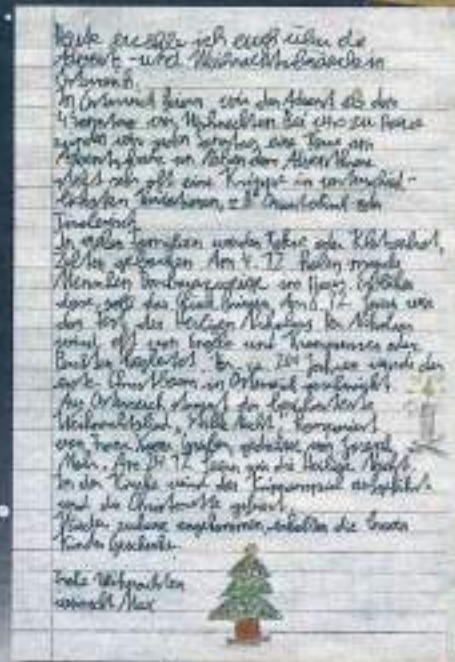 Heute erzähle ich euch über die
Advent - und Weihnachtsbräuche in
Österreich.
In Österreich feiern wir den Advent als den
4 Sonntag vor Weihnachten Bei uns zu Hause
zünden wir jeden Sonntag eine Kerze am
Adventkranz an Neben dem Adventkranz
steht sehr oft eine Krippe in unterschied-
lichsten
In vielen Familien werden Kekse oder Kletzenbrot,
gebacken Am 4. 12 holen manche
Menschen Barbarazweige ins Haus
diese soll das Glück bringen Am 6 12 feiern wir
das Fest des Heiligen Nikolaus Der Nikolaus
wird oft von Engeln und Krampussen oder
begleitet. Vor ca. 200 Jahren wurde der
erste Christbaum in Österreich geschmückt
Aus Österreich stammt das berühmteste
Weihnachtslied, Stille Nacht, komponiert
von Franz Xaver Gruber gedichtet von Joseph
Mohr. Am 24 12 feiern wir die Heilige Nacht
In der Kirche wird das Krippenspiel aufgeführt
und die Christmette gefeiert.
Wieder zuhause angekommen, erhalten die braven
Kinder Geschenke.
Frohe Weihnachten
wünscht Max